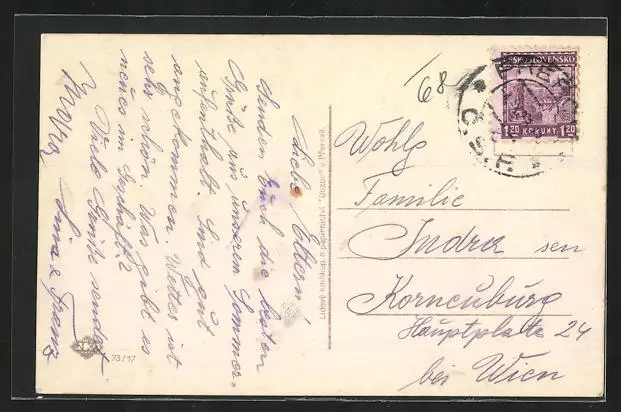 Liebe Eltern!
Senden Euch die besten
Grüße aus unserem Sommer-
aufenthalt. Sind gut
angekommen. Wetter ist
sehr schön. Was gibt es
neues im Geschäft?
Viele Grüße sendet
Franz
73/17
Lidové knihkup. a papírnictví "Obzor" v Přerově.
68
ČESKOSLOVENSKO
1.20 KORUNY 1.20
Wohlg
Familie
Indra sen
Korneuburg
Hauptplatz 24
bei Wien